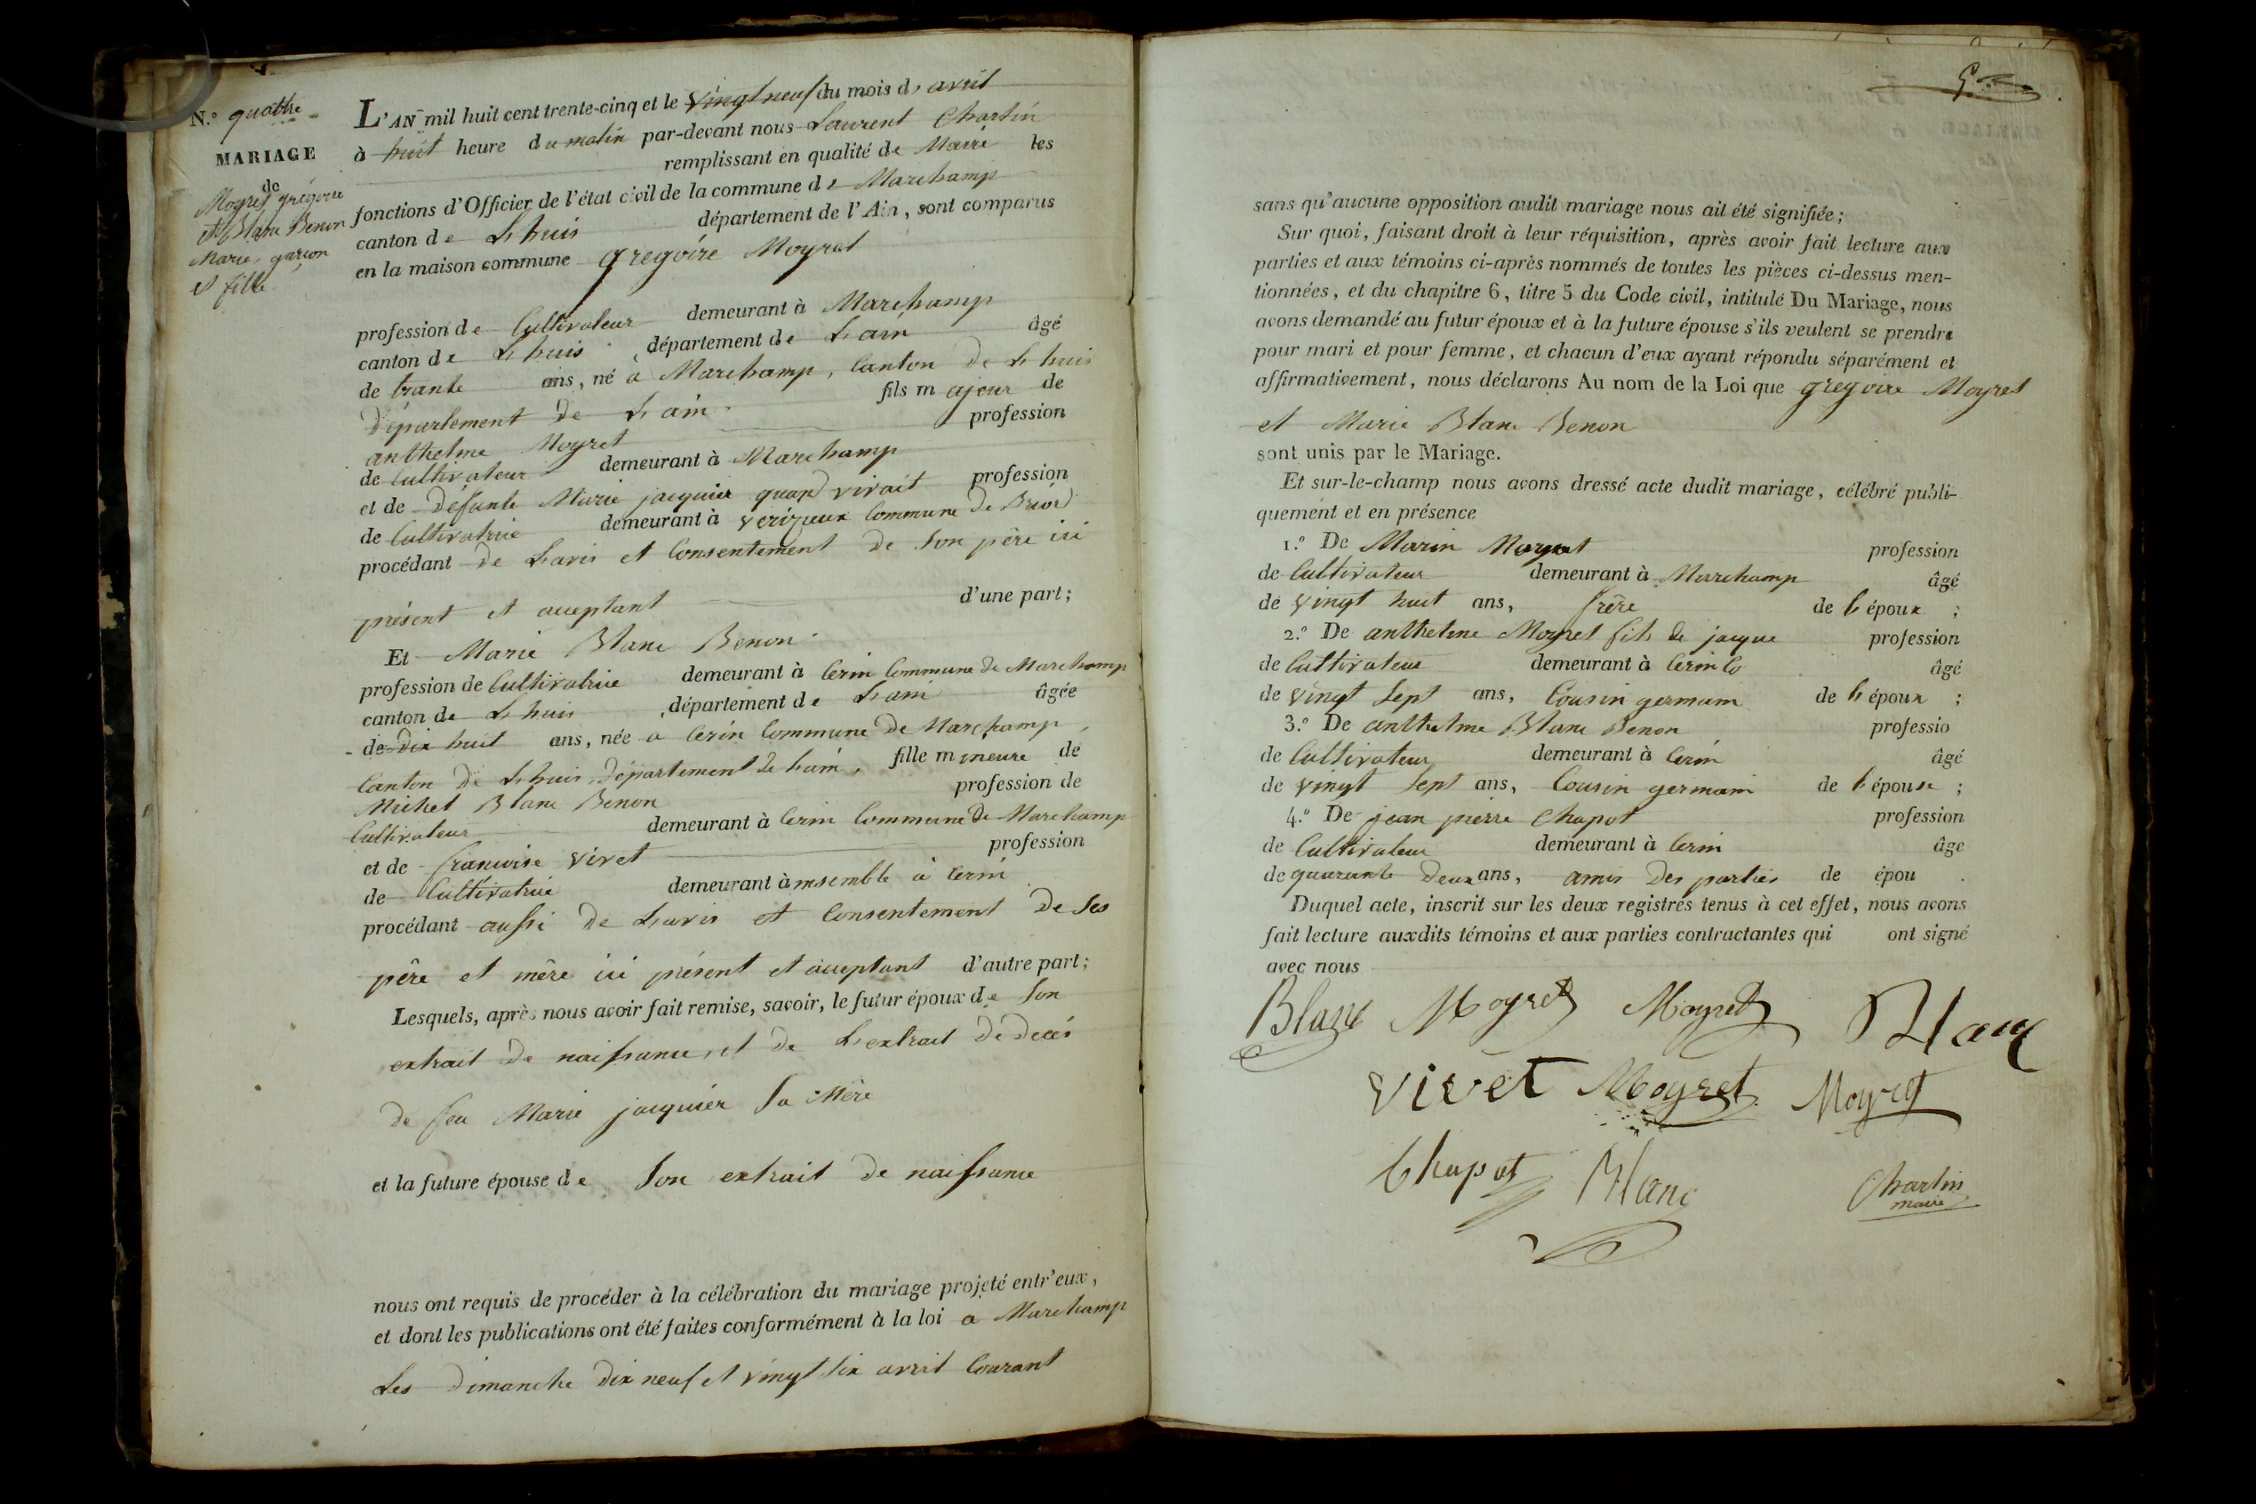 N.º quattre
MARIAGE
de
Moyret grégoire
et Blanc Benon
Marie, garçon
et fille
L'AN mil huit cent trente-cinq et le vingt neuf du mois d, avril
à huit heure du matin par-devant nous Laurent Chartin
remplissant en qualité de Maire les
fonctions d'Officier de l'état civil de la commune de Marchamp
canton de Lhuis département de l'Ain, sont comparus
en la maison commune gregoire Moyret
profession de Cultivateur demeurant à Marchamp
canton de Lhuis département de Lain âgé
de trante ans, né a Marchamp, Canton de Lhuis
département de Lain fils majeur de
anthelme Moyret profession
de Cultivateur demeurant à Marchamp
et de défunte Marie jacquier quand vivait profession
de Cultivatrice demeurant à verizieux Commune de Briord
procédant de Lavis et Consentement de son père ici
présent et acceptant d'une part;
Et Marie Blanc Benon
profession de Cultivatrice demeurant à Cerin Commune de Marchamp
canton de Lhuis département de Lain âgée
de dix huit ans, née a Cerin Commune de Marchamp
Canton de Lhuis département de Lain, fille mineure de
Michel Blanc Benon profession de
Cultivateur demeurant à Cerin Commune de Marchamp
et de francoise vivet profession
de Cultivatrice demeurant à ensemble à Cerin
procédant aussi de Lavis et Consentement de ses
père et mère ici présent et acceptant d'autre part;
Lesquels, après nous avoir fait remise, savoir, le futur époux de son
extrait de naissance, et de Lextrait de decès
de feu Marie jacquier sa Mère
et la future épouse de son extrait de naissance
nous ont requis de procéder à la célébration du mariage projeté entr'eux,
et dont les publications ont été faites conformément à la loi a Marchamp
Les dimanche dix neuf et vingt six avril Courant
sans qu'aucune opposition audit mariage nous ait été signifiée;
Sur quoi, faisant droit à leur réquisition, après avoir fait lecture aux
parties et aux témoins ci-après nommés de toutes les pièces ci-dessus men-
tionnées, et du chapitre 6, titre 5 du Code civil, intitulé Du Mariage, nous
avons demandé au futur époux et à la future épouse s'ils veulent se prendre
pour mari et pour femme, et chacun d'eux ayant répondu séparément et
affirmativement, nous déclarons Au nom de la Loi que gregoire Moyret
et Marie Blanc Benon
sont unis par le Mariage.
Et sur-le-champ nous avons dressé acte dudit mariage, célébré publi-
quement et en présence
1.º De Marin Moyret profession
de Cultivateur demeurant à Marchamp âgé
de vingt huit ans, frère de l'époux ;
2.º De anthelme Moyret fils de jacque profession
de Cultivateur demeurant à Cerin Co âgé
de vingt sept ans, Cousin germain de l'époux ;
3.º De anthelme Blanc Benon professio
de Cultivateur demeurant à Cerin âgé
de vingt sept ans, Cousin germain de l'épouse ;
4.º De jean pierre Chapot profession
de Cultivateur demeurant à Cerin âge
de quarante deux ans, amis des parties de épou .
Duquel acte, inscrit sur les deux registres tenus à cet effet, nous avons
fait lecture auxdits témoins et aux parties contractantes qui ont signé
avec nous
Blanc Moyret Moyret Blanc
vivet Moyret Moyret
Chapot Blanc Chartin
maire